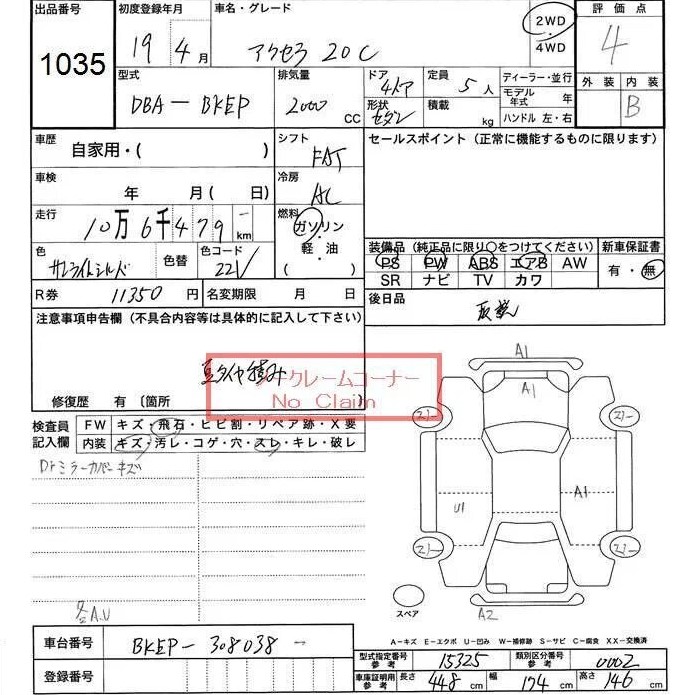 出品番号 初度登録年月 車名・グレード 評価点
1035 19 4月 アクセラ 20C 2WD 4
4WD
型式 排気量 ドア 定員 ディーラー・並行 外装 内装
DBA-BKEP 2000 CC 4ドア 5人 モデル年式 年 B
形状 セダン 積載 kg ハンドル 左・右
車歴 自家用・( ) シフト FAT セールスポイント(正常に機能するものに限ります)
車検 年 月( 日) 冷房 AC
走行 10万6千479 km 燃料 ガソリン
軽・油
( )
色 色替 色コード 22V
装備品(純正品に限り○をつけてください) 新車保証書
PS PW ABS エアB AW 有・無
SR ナビ TV カワ
R券 11350円 名変期限 月 日 後日品 取説
注意事項申告欄(不具合内容等は具体的に記入して下さい)
ノークレームコーナー
No Claim
修復歴 有〔箇所 〕
検査員記入欄 FW キズ・飛石・ヒビ割・リペア跡・X要
内装 キズ・汚レ・コゲ・穴・スレ・キレ・破レ
Drミラーカバーキズ
A1
A1
U1 A1
スペア
各A.U A2
A-キズ E-エクボ U-凹み W-補修跡 S-サビ C-腐食 XX-交換済
車台番号 BKEP-308038
登録番号
型式指定番号 参考 15325 類別区分番号 参考 0002
車庫証明用 参考 長さ 448cm 幅 174cm 高さ 146cm